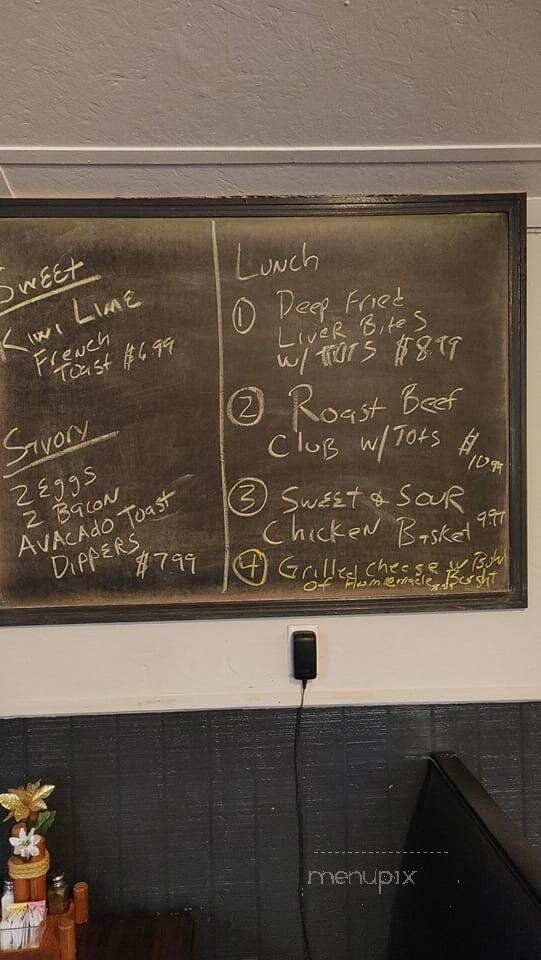 SWEET
Kiwi Lime
French
Toast $6.99
Savory
2 Eggs
2 Bacon
AVACADO Toast
Dippers
$7.99
Lunch
① Deep Fried
Liver Bites
w/ TOTS $8.99
② Roast Beef
Club w/ Tots $10.99
③ Sweet & Sour
Chicken Basket 9.99
④ Grilled Cheese w/ Bowl
Of Homemade Borsht
menupix